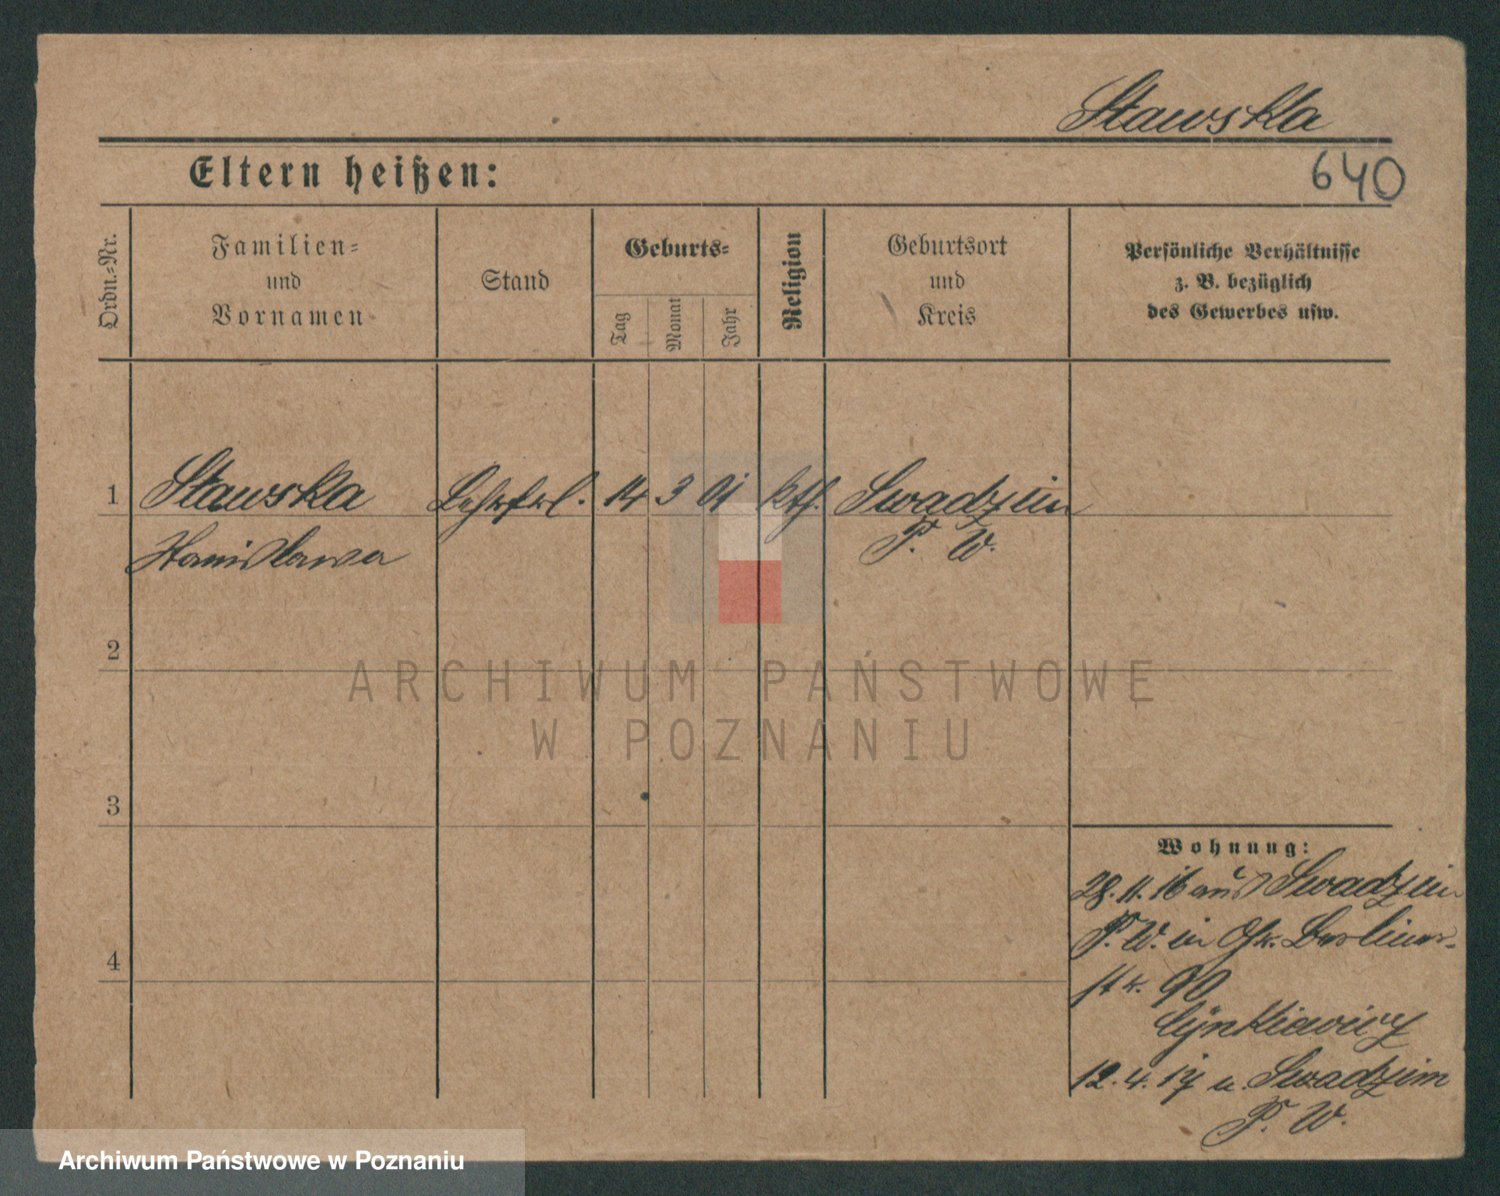 Stawska
Eltern heißen:
640
Ordn.-Nr.
Familien-
und
Vornamen
Stand
Geburts-
Tag
Monat
Jahr
Religion
Geburtsort
und
Kreis
Persönliche Verhältnisse
z. B. bezüglich
des Gewerbes usw.
1 Stawska Lehrfrl. 14 3 01 kth. Swadzim
Stanislawa P. W.
2
3
4
Wohnung:
28.11.16 aus Swadzim
P. W. in Berliner-
str. 90
12.4.17 n. Swadzim
P. W.
ARCHIWUM PAŃSTWOWE
W POZNANIU
Archiwum Państwowe w Poznaniu